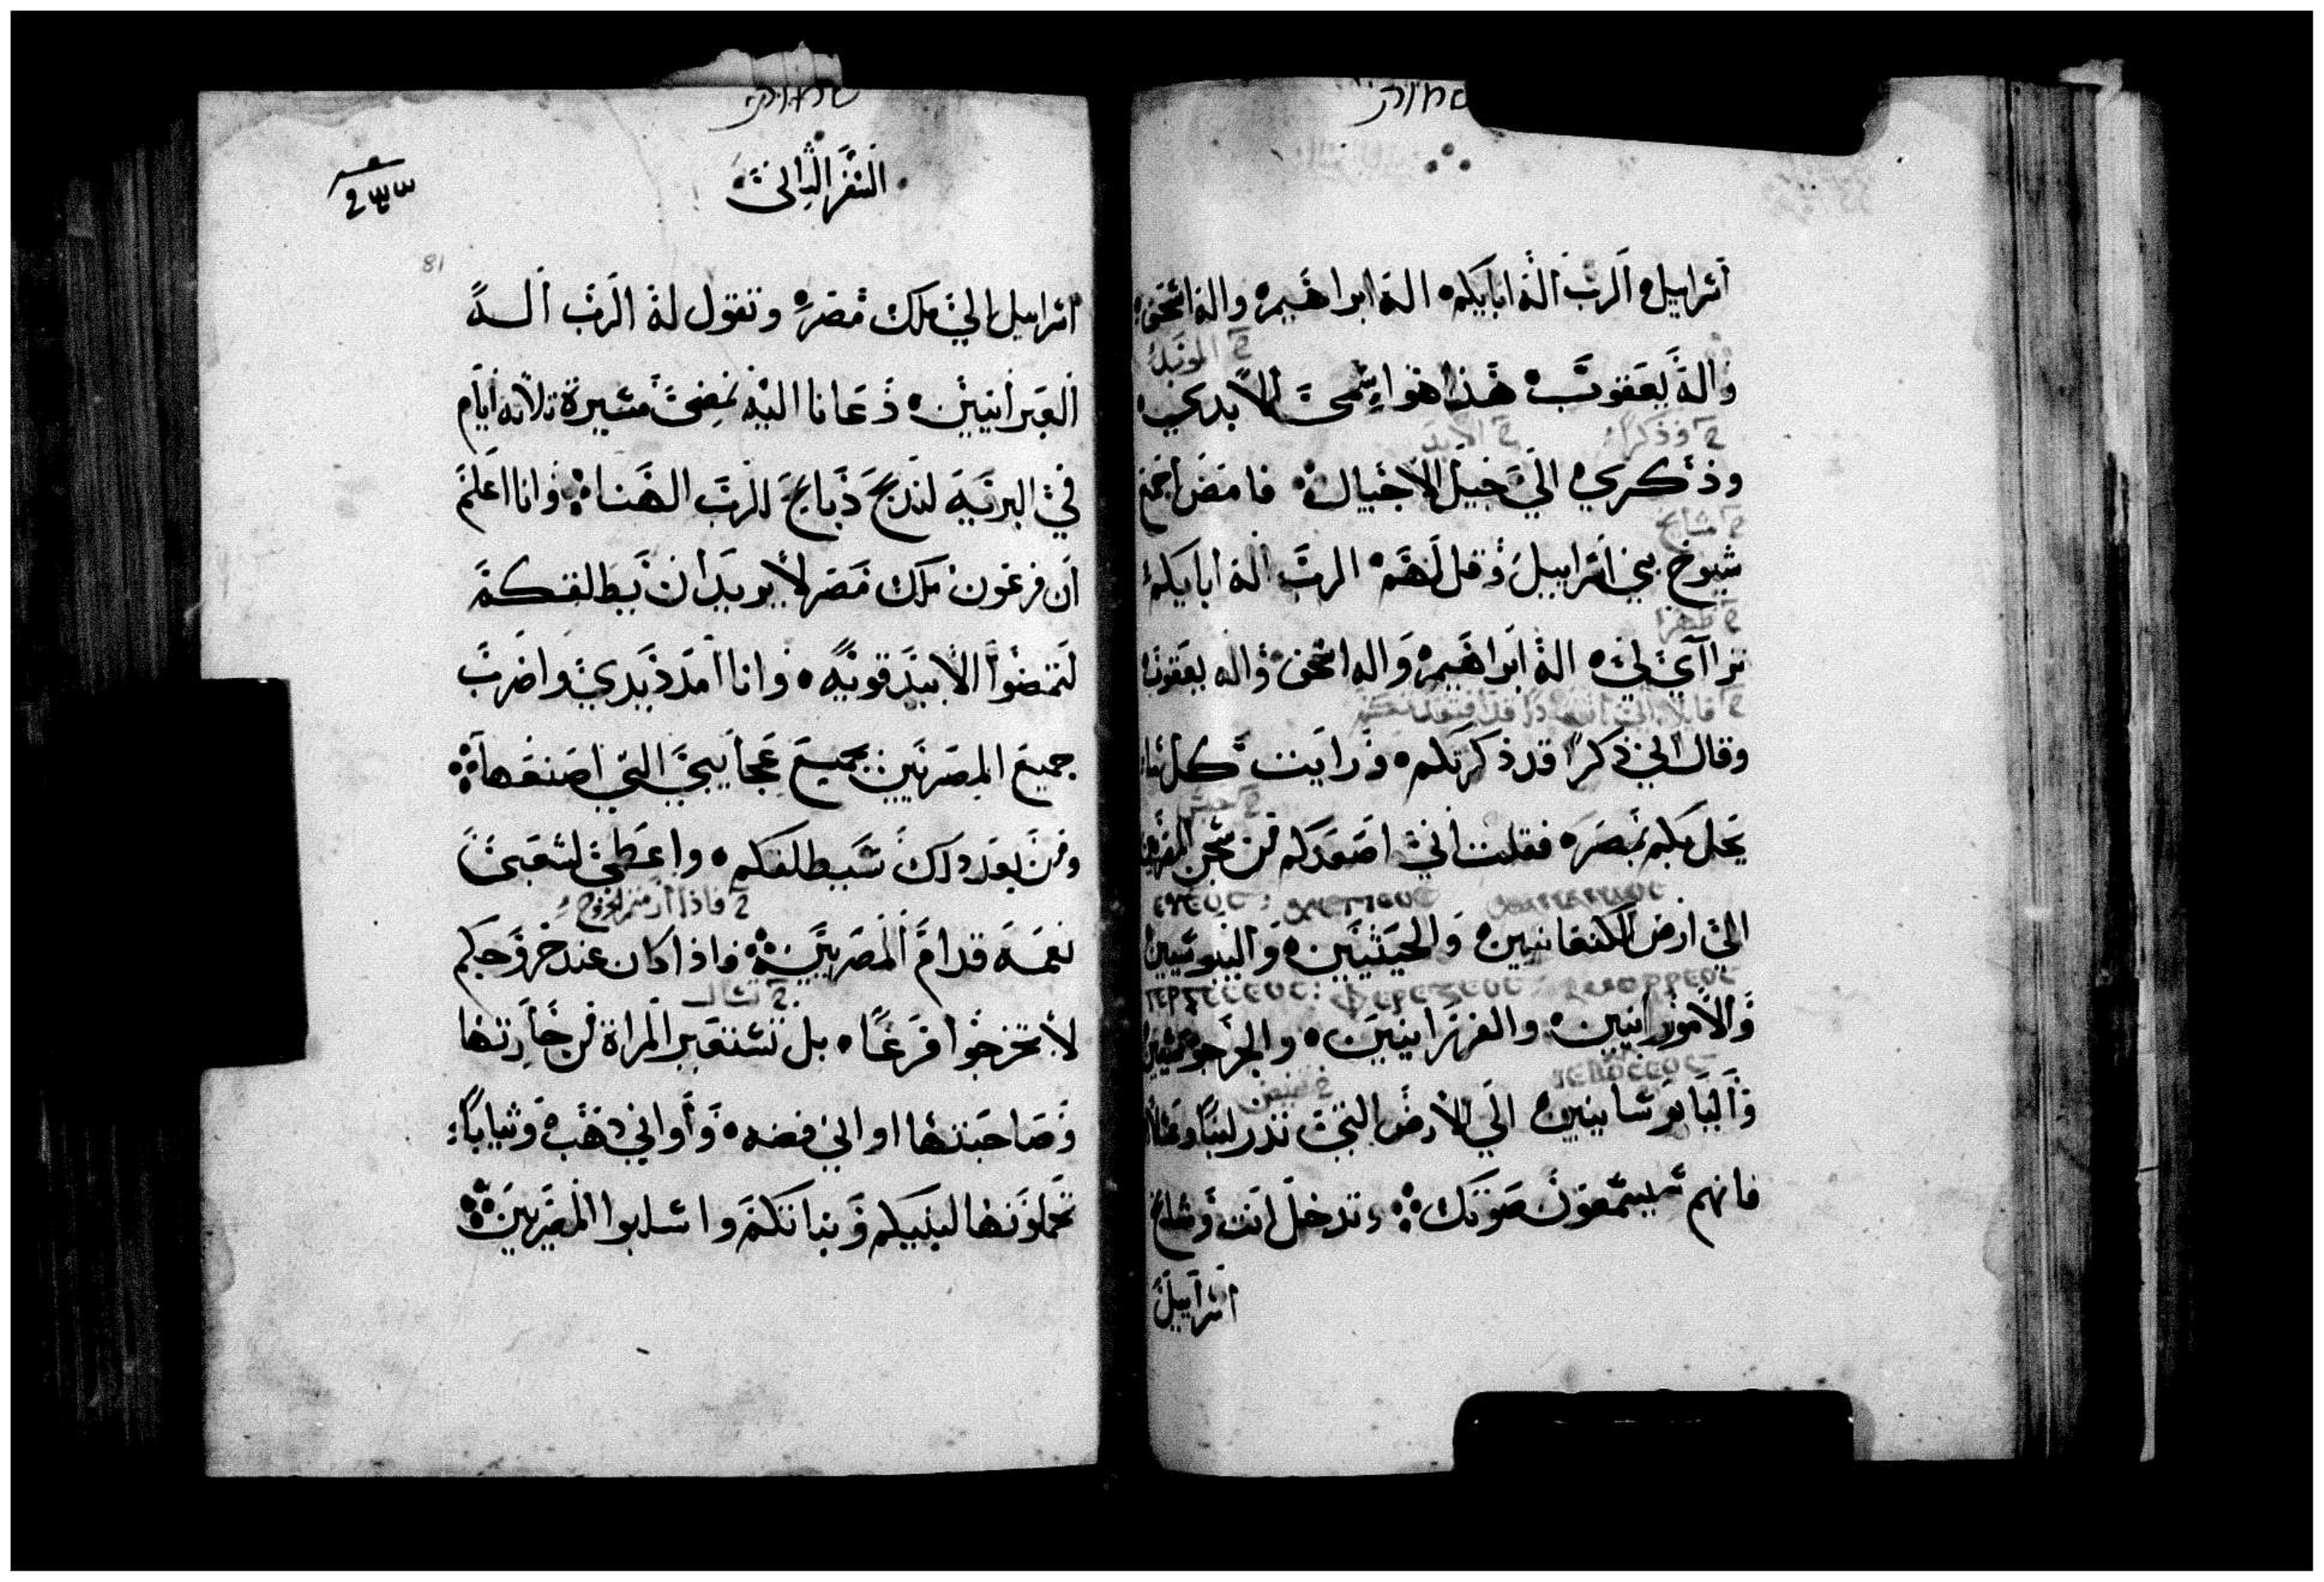 שמות
اسراييل الرب اله ابايكم اله ابراهيم واله اسحق
واله يعقوب هذا هو اسمى الابدي
وذكري الى جيل الاجيال فامض اجمع
شيوخ بني اسراييل وقل لهم الرب اله ابايكم
تراآى لي اله ابراهيم واله اسحق واله يعقوب
وقال لي ذكرا قد ذكرتكم ورايت كل ما
يحل بكم بمصر فقلت انى اصعدكم من سجن المصريين
الى ارض الكنعانيين والحيثيين واليبوسيين
والامورانيين والفرزانيين والجرجوسيين
واليابوسانيين الى الارض التى تدر لبنا وعسلا
فانهم سيسمعون صوتك وتدخل انت وشايخ
اسراييل
שמות
السفر الثانى
81
اسراييل الى ملك مصر وتقول له الرب اله
العبرانيين دعانا اليه نمضى مسيرة ثلاثه ايام
في البريه لنذبح ذبايح للرب الهنا وانا اعلم
ان فرعون ملك مصر لا يريد ان يطلقكم
لتمضوا الا بيد قويه وانا امد يدي واضرب
جميع المصريين بجميع عجايبي التي اصنعها
ومن بعد ذلك سيطلقكم واعطى لشعبى
نعمه قدام المصريين فاذا كان عند خروجكم
لا تخرجوا فرغا بل تستعير المراة من جارتها
وصاحبتها اواني فضه واواني ذهب وثيابا
تحملونها لبنيكم وبناتكم واسلبوا المصريين